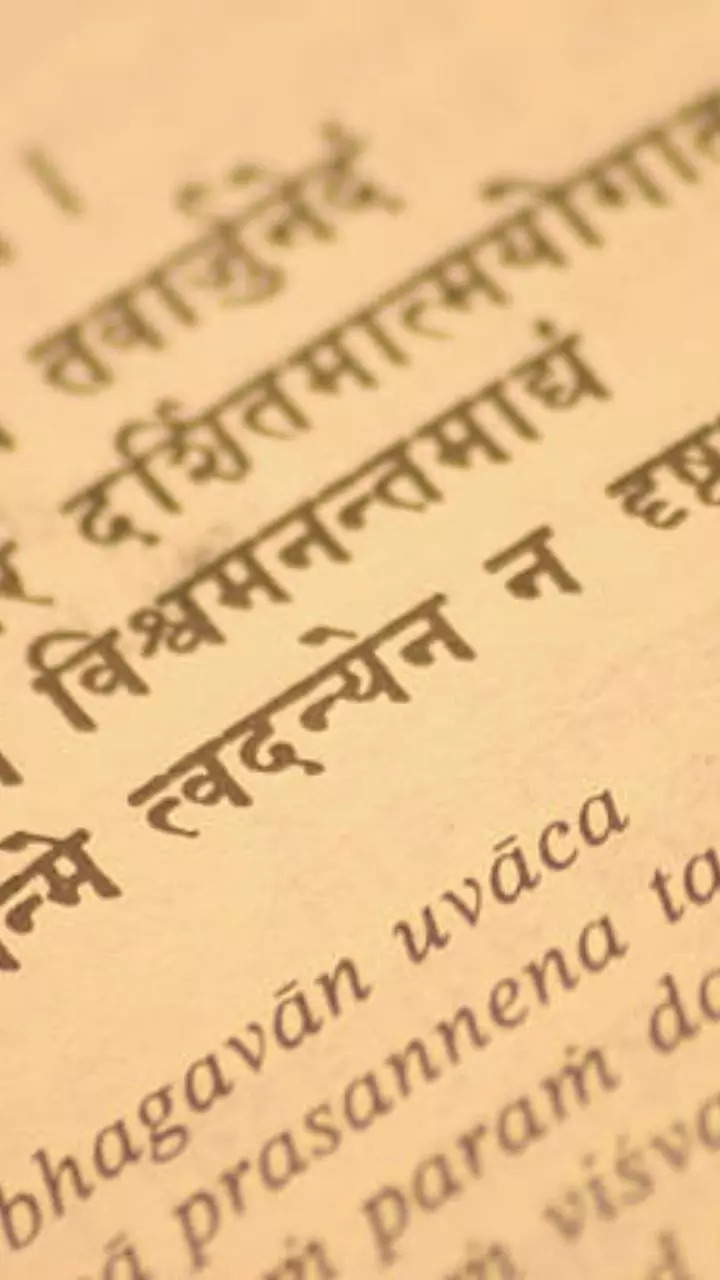 ।
तवार्जुनेदं
दर्शितमात्मयोगात
विश्वमनन्तमाद्यं
न्मे त्वदन्येन न दृष्ट
bhagavān uvāca
prasannena ta
paraṁ da
viśva